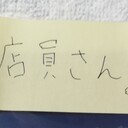 店員さん。